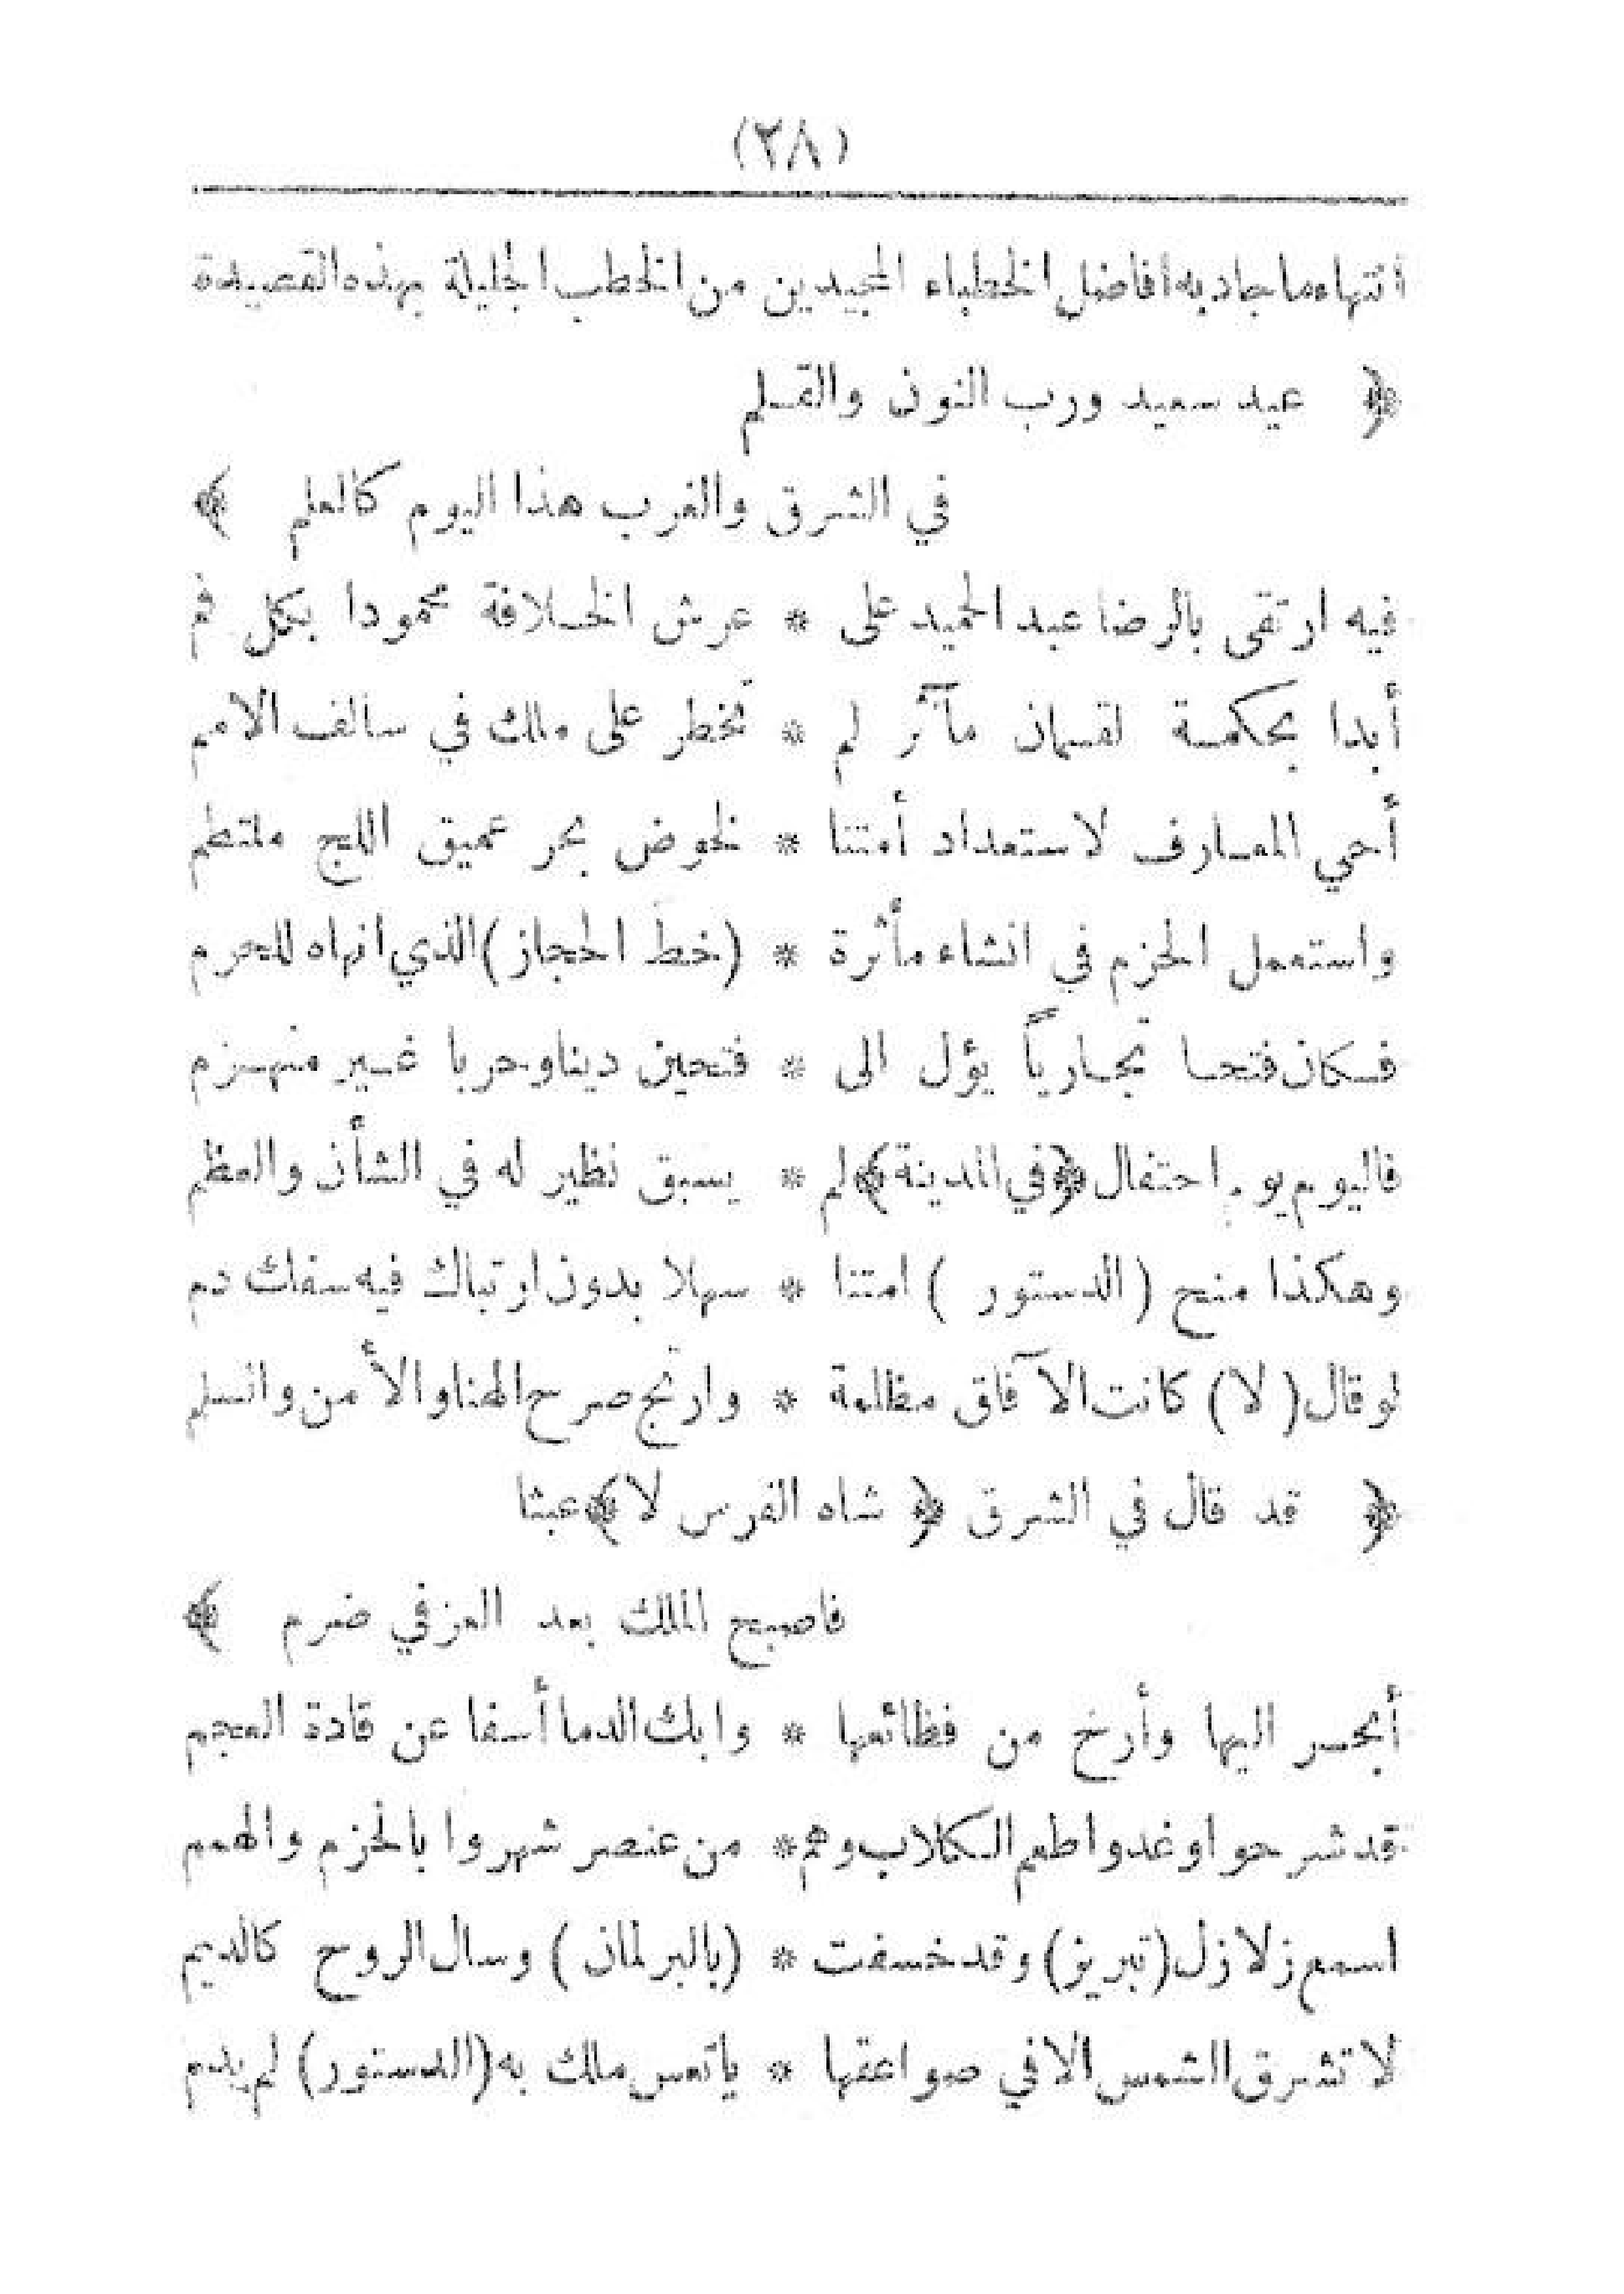 (٢٨)
انتهاء ما جاد به افاضل الخطباء المجيدين من الخطب الجليلة بهذه القصيدة
﴿ عيد سعيد ورب النون والقلم
في الشرق والغرب هذا اليوم كالعلم ﴾
فيه ارتقى بالرضا عبد الحميد على * عرش الخلافة محمودا بكل فم
أبدا بحكمة لقمان مآثر لم * تخطر على ملك في سالف الامم
أحي المعارف لاستعداد أمتنا * لخوض بحر عميق اللج ملتطم
واستعمل الحزم في انشاء مأثرة * (خط الحجاز) الذي انهاه للحرم
فكان فتحا تجارياً يؤل الى * فتحين دينا وحربا غير منهزم
فاليوم يوم احتفال ﴿في المدينة﴾ لم * يسبق نظير له في الشأن والعظم
وهكذا منح (الدستور) امتنا * سهلا بدون ارتباك فيه سفك دم
لو قال (لا) كانت الآفاق مظلمة * وارتج صرح الهنا والأمن والسلم
﴿ قد قال في الشرق ﴿ شاه الفرس لا﴾ عبثا
فاصبح الملك بعد العز في ضرم ﴾
أبحر اليها وأرخ من فظائعها * وابك الدما أسفا عن قادة العجم
قد شرحوا وغدوا طعم الكلاب وهم * من عنصر شهروا بالحزم والهمم
اسمع زلازل (تبريز) وقد خسفت * (بالبرلمان) وسال الروح كالديم
لا تشرق الشمس الا في صواعقها * ياتعس ملك به (الدستور) لم يدم